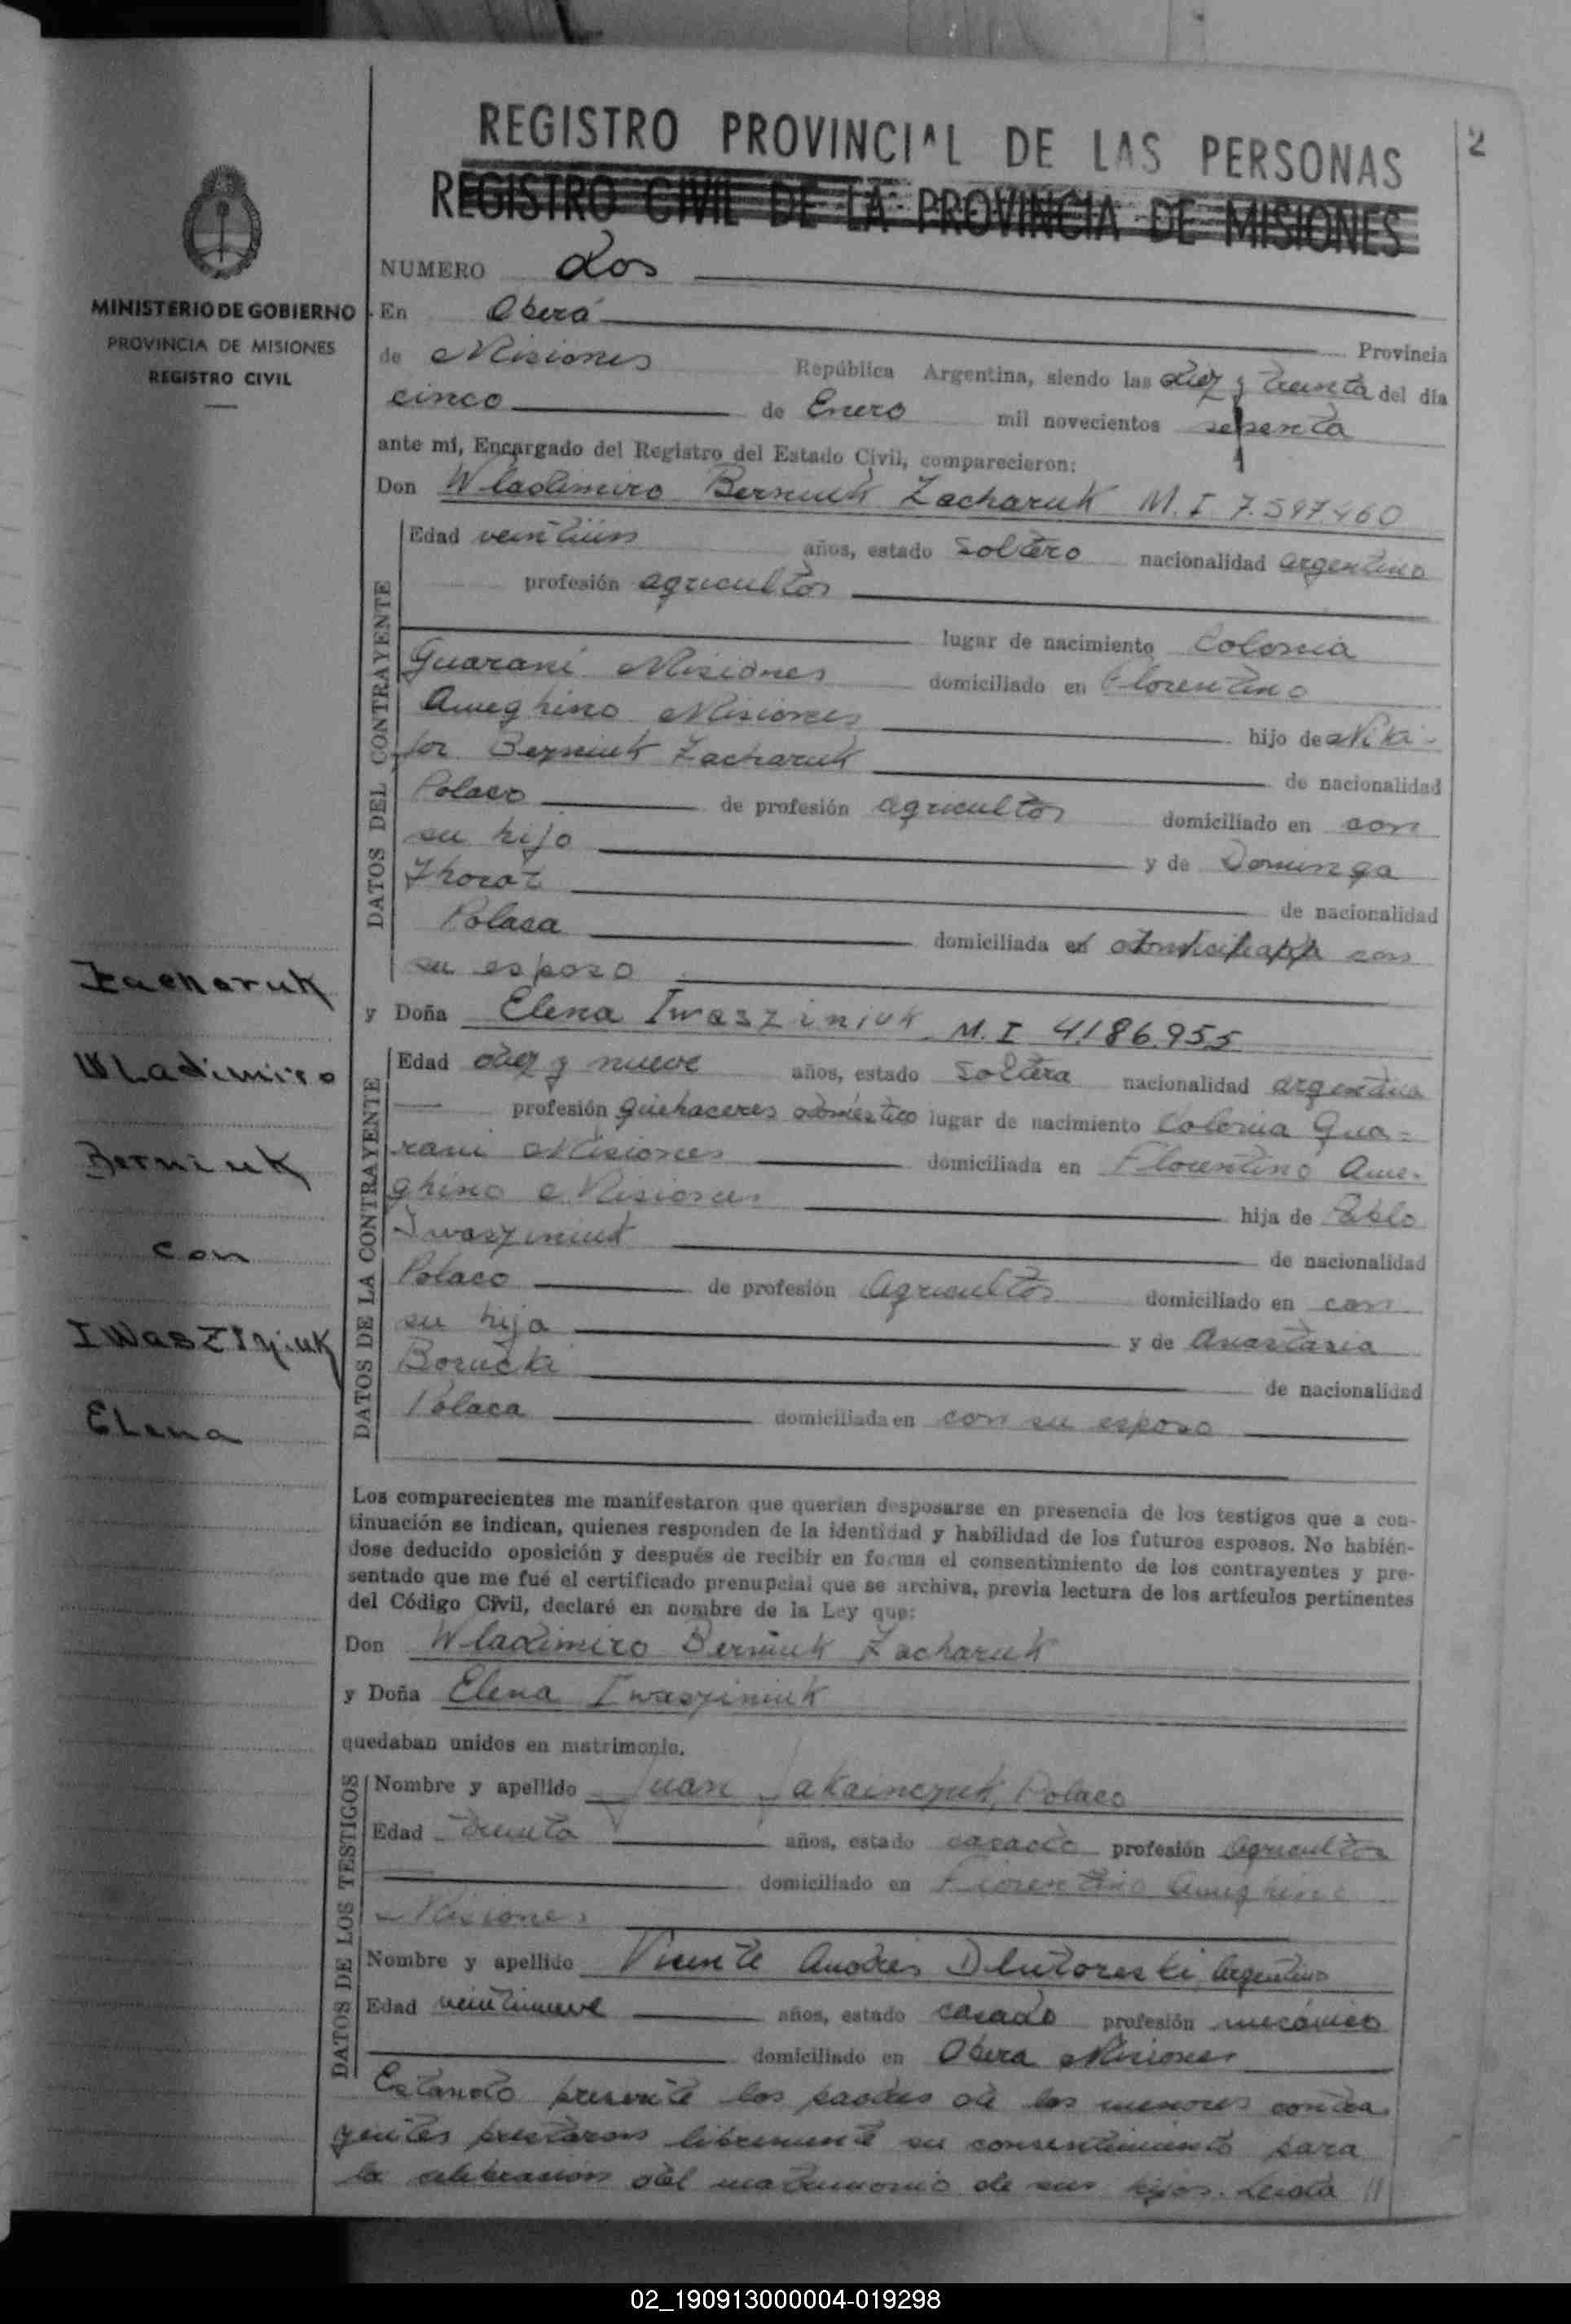 2
REGISTRO PROVINCIAL DE LAS PERSONAS
REGISTRO CIVIL DE LA PROVINCIA DE MISIONES
MINISTERIO DE GOBIERNO
PROVINCIA DE MISIONES
REGISTRO CIVIL
NUMERO dos
En Oberá Provincia
de Misiones República Argentina, siendo las diez y treinta del día
cinco de Enero mil novecientos setenta
ante mi, Encargado del Registro del Estado Civil, comparecieron:
Don Wladimiro Berniuk Zacharuk M. I 7.597.460
DATOS DEL CONTRAYENTE
Edad veintiún años, estado soltero nacionalidad argentino
profesión agricultor
lugar de nacimiento Colonia
Guaraní Misiones domiciliado en Florentino
Ameghino Misiones hijo de Niki-
for Berniuk Zacharuk de nacionalidad
Polaco de profesión agricultor domiciliado en con
su hijo y de Dominga
de nacionalidad
Polaca domiciliada en domiciliada con
su esposo
y Doña Elena Iwasziniuk M. I 4.186.955
DATOS DE LA CONTRAYENTE
Edad diez y nueve años, estado soltera nacionalidad argentina
profesión quehaceres doméstico lugar de nacimiento Colonia Gua=
rani Misiones domiciliada en Florentino Ame-
ghino Misiones hija de Pablo
Iwasziniuk de nacionalidad
Polaco de profesión agricultor domiciliado en con
su hija y de Anastasia
Borucki de nacionalidad
Polaca domiciliada en con su esposo
Zacharuk
Wladimiro
Berniuk
con
Iwasziniuk
Elena
Los comparecientes me manifestaron que querían desposarse en presencia de los testigos que a con-
tinuación se indican, quienes responden de la identidad y habilidad de los futuros esposos. No habién-
dose deducido oposición y después de recibir en forma el consentimiento de los contrayentes y pre-
sentado que me fué el certificado prenupcial que se archiva, previa lectura de los artículos pertinentes
del Código Civil, declaré en nombre de la Ley que:
Don Wladimiro Berniuk Zacharuk
y Doña Elena Iwasziniuk
quedaban unidos en matrimonio.
DATOS DE LOS TESTIGOS
Nombre y apellido Juan Jakainczuk, Polaco
Edad treinta años, estado casado profesión agricultor
domiciliado en Florentino Ameghino
Misiones
Nombre y apellido Vicente Andres Dlutoreski, argentino
Edad veintinueve años, estado casado profesión mecánico
domiciliado en Oberá Misiones
Estando presente los padres de los menores contra
yentes prestaron libremente su consentimiento para
la celebración del matrimonio de sus hijos. Leida //
02_190913000004-019298